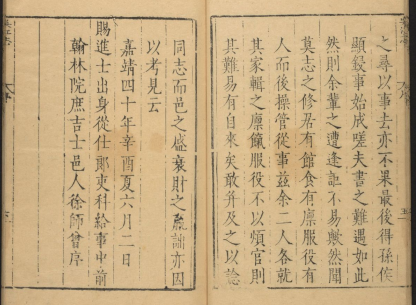 之尋以事去亦不果最後得孫侯
顯毀事始成嗟夫書之難遇如此
然則余輩之遭逢詎不易歟然聞
莫志之修居有館食有廩服役有
人而後操管從事茲余二人各就
其家輯之廩餼服役不以煩官則
其難易有自來矣敢并及之以諗
同志而邑之盛衰財之贏詘亦因
以考見云
嘉靖四十年辛酉夏六月二日
賜進士出身從仕郎吏科給事中前
翰林院庶吉士邑人徐師曾序